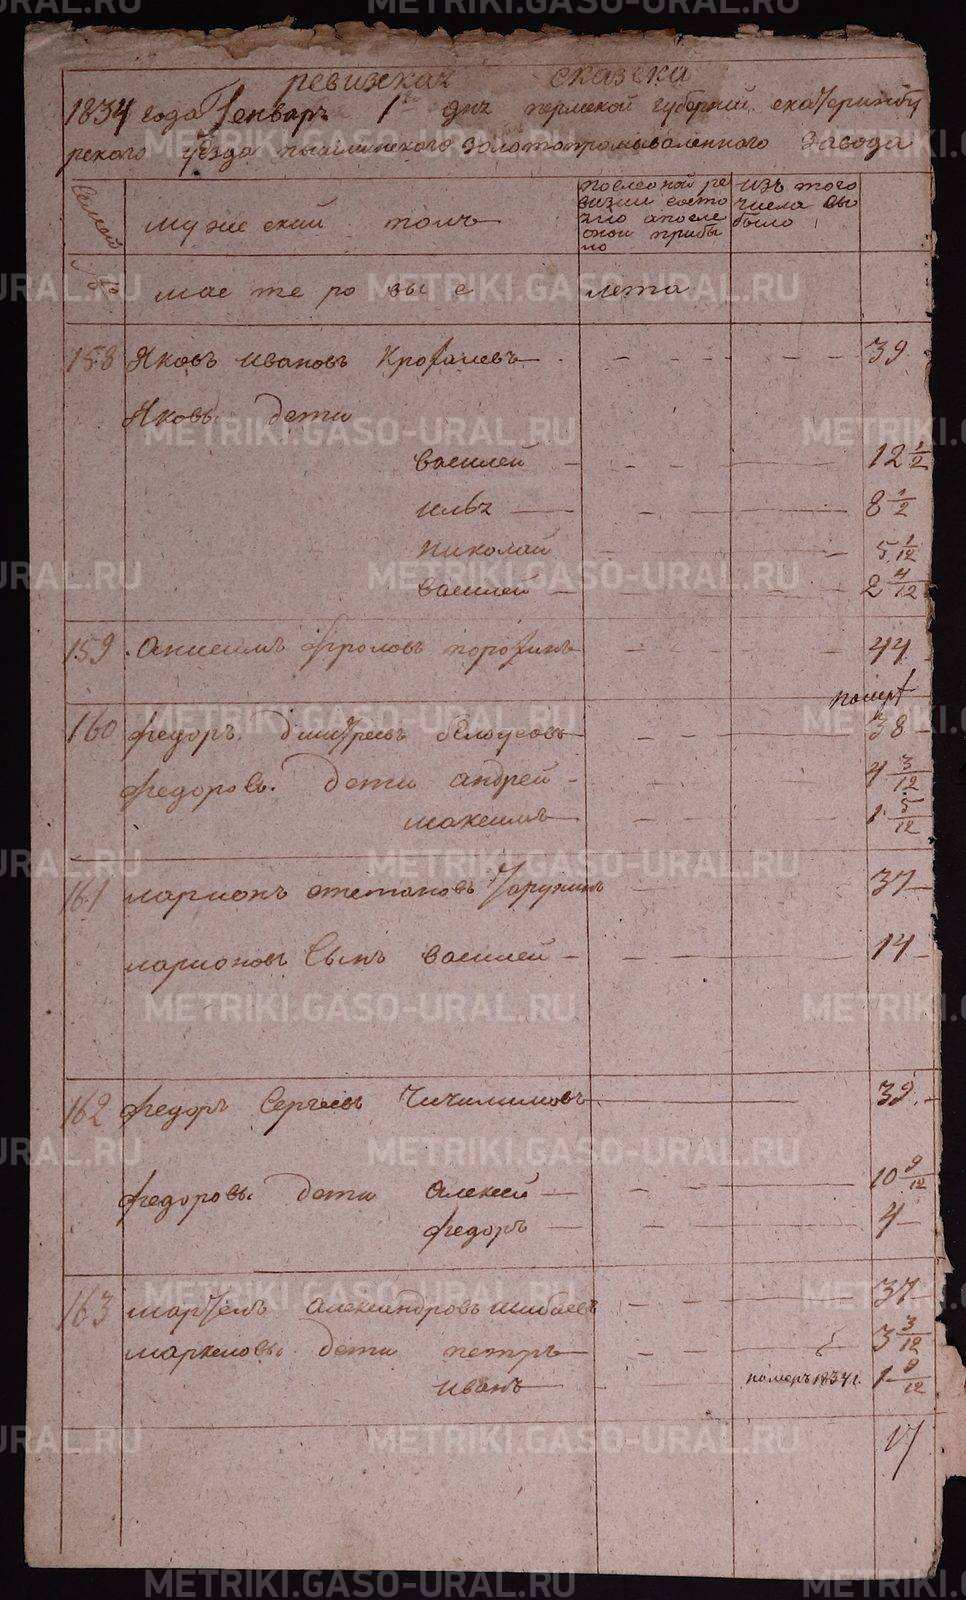 ревизская сказска
1834 года Генваря 1 дня пермской губернии екатеринбу
рского уезда пышминского золотопромываленного завода
Семей
мужеский полъ
последней ре
визии состо
яло апосле
оной прибы
ло
изъ того
числа вы
было
№
мас те ро вы е
лета
158 Яковъ ивановъ Кротачевъ 39
Яковы дети
василей 12 1/2
илья 8 1/2
николай 5 1/12
василей 2 4/12
159 Анисимъ фроловъ поротинъ 44
померъ
160 федоръ дмитреевъ белоусовъ 38
федоровы дети андрей 4 3/12
максимъ 1 5/12
161 ларионъ степановъ Тарунинъ 37
ларионовъ Сынъ василей 14
162 федоръ Сергеевъ Чичилимовъ 39
федоровы дети Алексей 10 9/12
федоръ 4
163 мартемъ александровъ шибаевъ 37
маркеловы дети петръ 3 3/12
иванъ померъ 1834 г. 1 9/12
17
METRIKI.GASO-URAL.RU